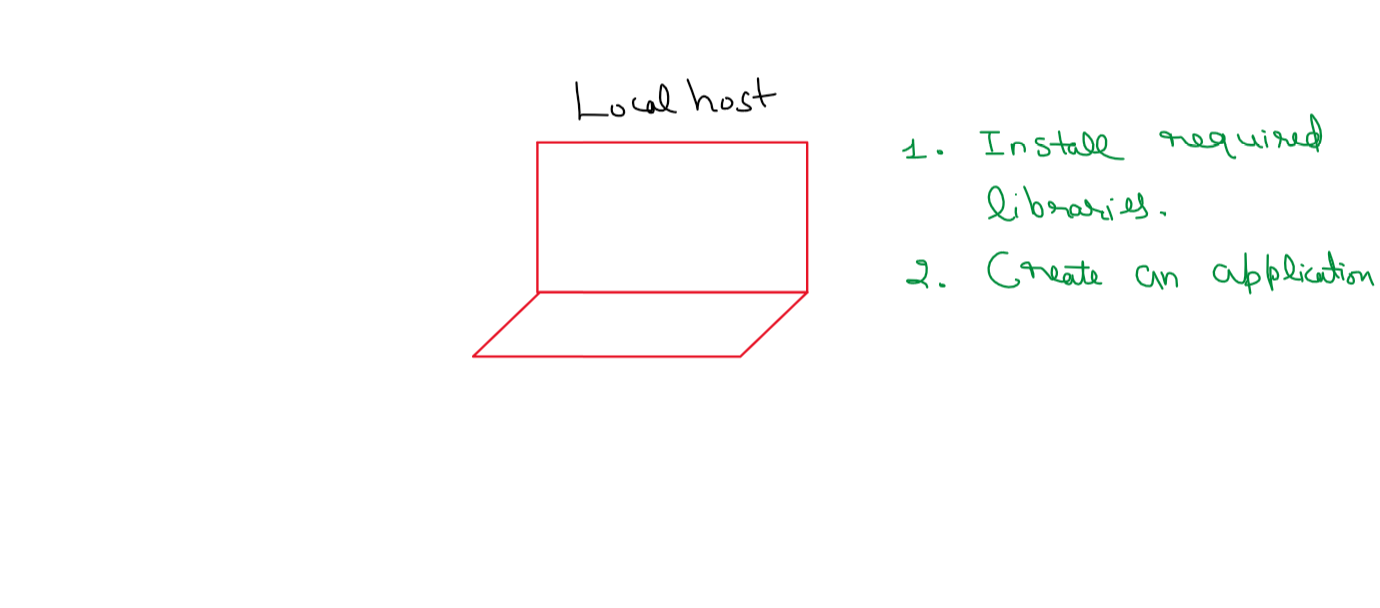 Local host
1. Install required
libraries.
2. Create an application